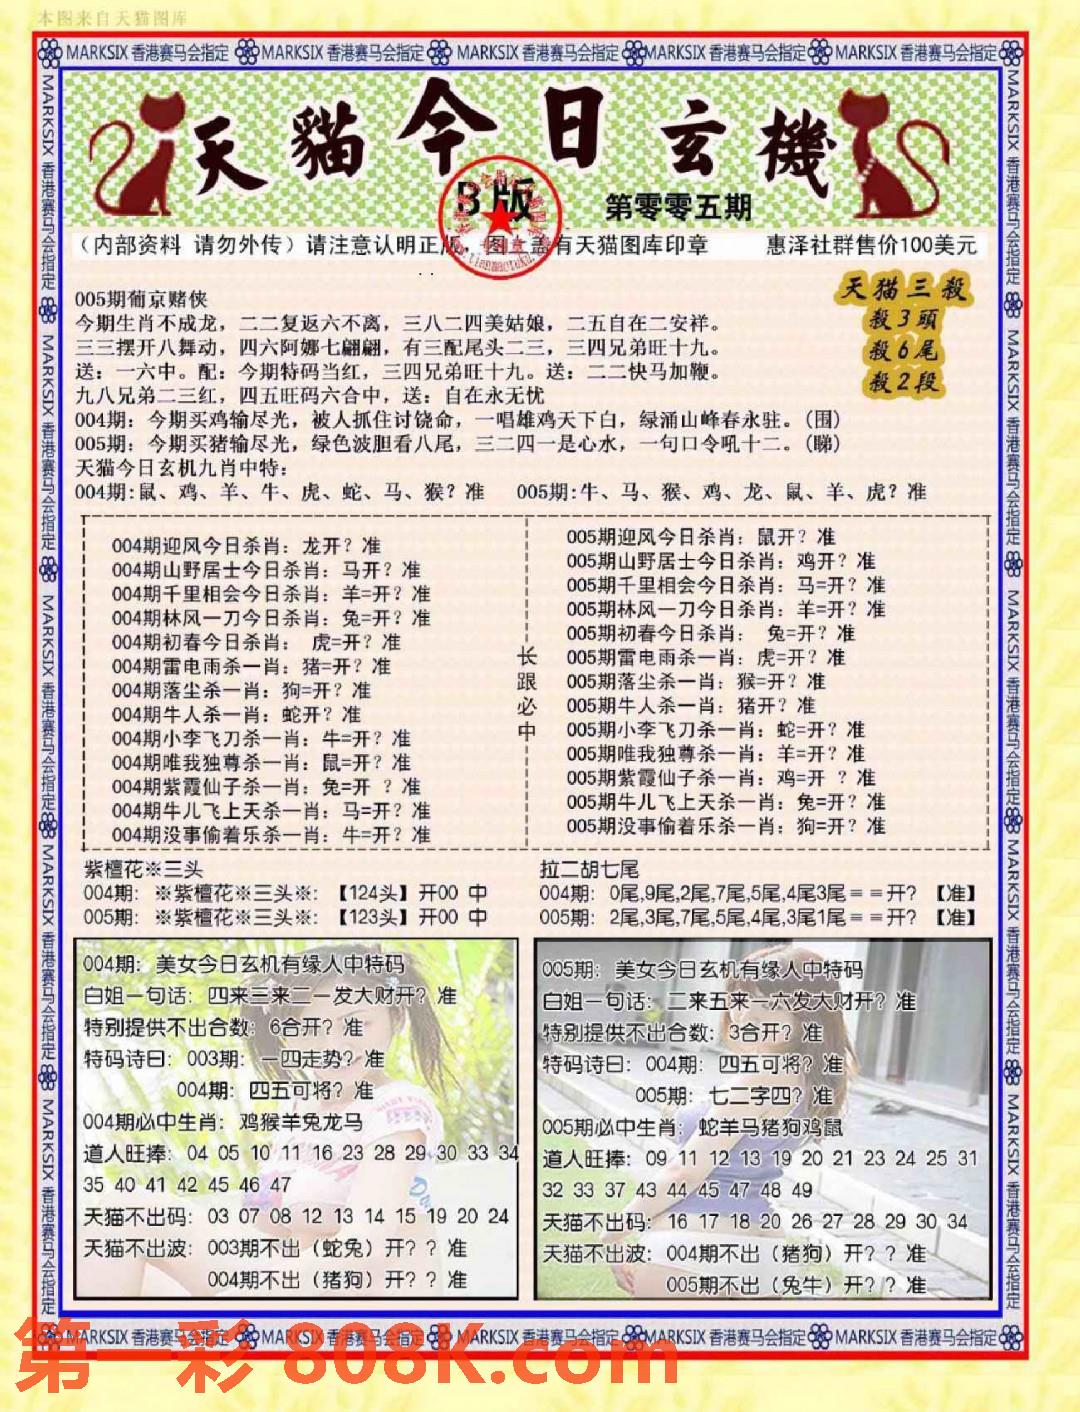 本图来自天猫图库
MARKSIX 香港赛马会指定 MARKSIX 香港赛马会指定 MARKSIX 香港赛马会指定 MARKSIX 香港赛马会指定 MARKSIX 香港赛马会指定
天貓今日玄機
B版
第零零五期
(内部资料 请勿外传)请注意认明正版,图上盖有天猫图库印章 惠泽社群售价100美元
天猫三殺
殺3頭
殺6尾
殺2段
005期葡京赌侠
今期生肖不成龙,二二复返六不离,三八二四美姑娘,二五自在二安祥。
三三摆开八舞动,四六阿娜七翩翩,有三配尾头二三,三四兄弟旺十九。
送:一六中。配:今期特码当红,三四兄弟旺十九。送:二二快马加鞭。
九八兄弟二三红,四五旺码六合中,送:自在永无忧
004期:今期买鸡输尽光,被人抓住讨饶命,一唱雄鸡天下白,绿涌山峰春永驻。(围)
005期:今期买猪输尽光,绿色波胆看八尾,三二四一是心水,一句口令吼十二。(睇)
天猫今日玄机九肖中特:
004期:鼠、鸡、羊、牛、虎、蛇、马、猴?准 005期:牛、马、猴、鸡、龙、鼠、羊、虎?准
004期迎风今日杀肖:龙开?准
004期山野居士今日杀肖:马开?准
004期千里相会今日杀肖:羊=开?准
004期林风一刀今日杀肖:兔=开?准
004期初春今日杀肖: 虎=开?准
004期雷电雨杀一肖:猪=开?准
004期落尘杀一肖:狗=开?准
004期牛人杀一肖:蛇开?准
004期小李飞刀杀一肖:牛=开?准
004期唯我独尊杀一肖:鼠=开?准
004期紫霞仙子杀一肖:兔=开 ?准
004期牛儿飞上天杀一肖:马=开?准
004期没事偷着乐杀一肖:牛=开?准
长
跟
必
中
005期迎风今日杀肖:鼠开?准
005期山野居士今日杀肖:鸡开?准
005期千里相会今日杀肖:马=开?准
005期林风一刀今日杀肖:羊=开?准
005期初春今日杀肖: 兔=开?准
005期雷电雨杀一肖:虎=开?准
005期落尘杀一肖:猴=开?准
005期牛人杀一肖:猪开?准
005期小李飞刀杀一肖:蛇=开?准
005期唯我独尊杀一肖:羊=开?准
005期紫霞仙子杀一肖:鸡=开 ?准
005期牛儿飞上天杀一肖:兔=开?准
005期没事偷着乐杀一肖:狗=开?准
紫檀花※三头
004期: ※紫檀花※三头※:【124头】开00 中
005期: ※紫檀花※三头※:【123头】开00 中
拉二胡七尾
004期: 0尾,9尾,2尾,7尾,5尾,4尾3尾==开? 【准】
005期: 2尾,3尾,7尾,5尾,4尾,3尾1尾==开? 【准】
004期:美女今日玄机有缘人中特码
白姐一句话:四来三来二一发大财开?准
特别提供不出合数:6合开?准
特码诗曰:003期:一四走势?准
004期:四五可将?准
004期必中生肖:鸡猴羊兔龙马
道人旺捧:04 05 10 11 16 23 28 29 30 33 34
35 40 41 42 45 46 47
天猫不出码:03 07 08 12 13 14 15 19 20 24
天猫不出波:003期不出(蛇兔)开??准
004期不出(猪狗)开??准
005期:美女今日玄机有缘人中特码
白姐一句话:二来五来一六发大财开?准
特别提供不出合数:3合开?准
特码诗曰:004期:四五可将?准
005期:七二字四?准
005期必中生肖:蛇羊马猪狗鸡鼠
道人旺捧:09 11 12 13 19 20 21 23 24 25 31
32 33 37 43 44 45 47 48 49
天猫不出码:16 17 18 20 26 27 28 29 30 34
天猫不出波:004期不出(猪狗)开??准
005期不出(兔牛)开??准
MARKSIX 香港赛马会指定 MARKSIX 香港赛马会指定 MARKSIX 香港赛马会指定 MARKSIX 香港赛马会指定 MARKSIX 香港赛马会指定
第一彩 808K.com